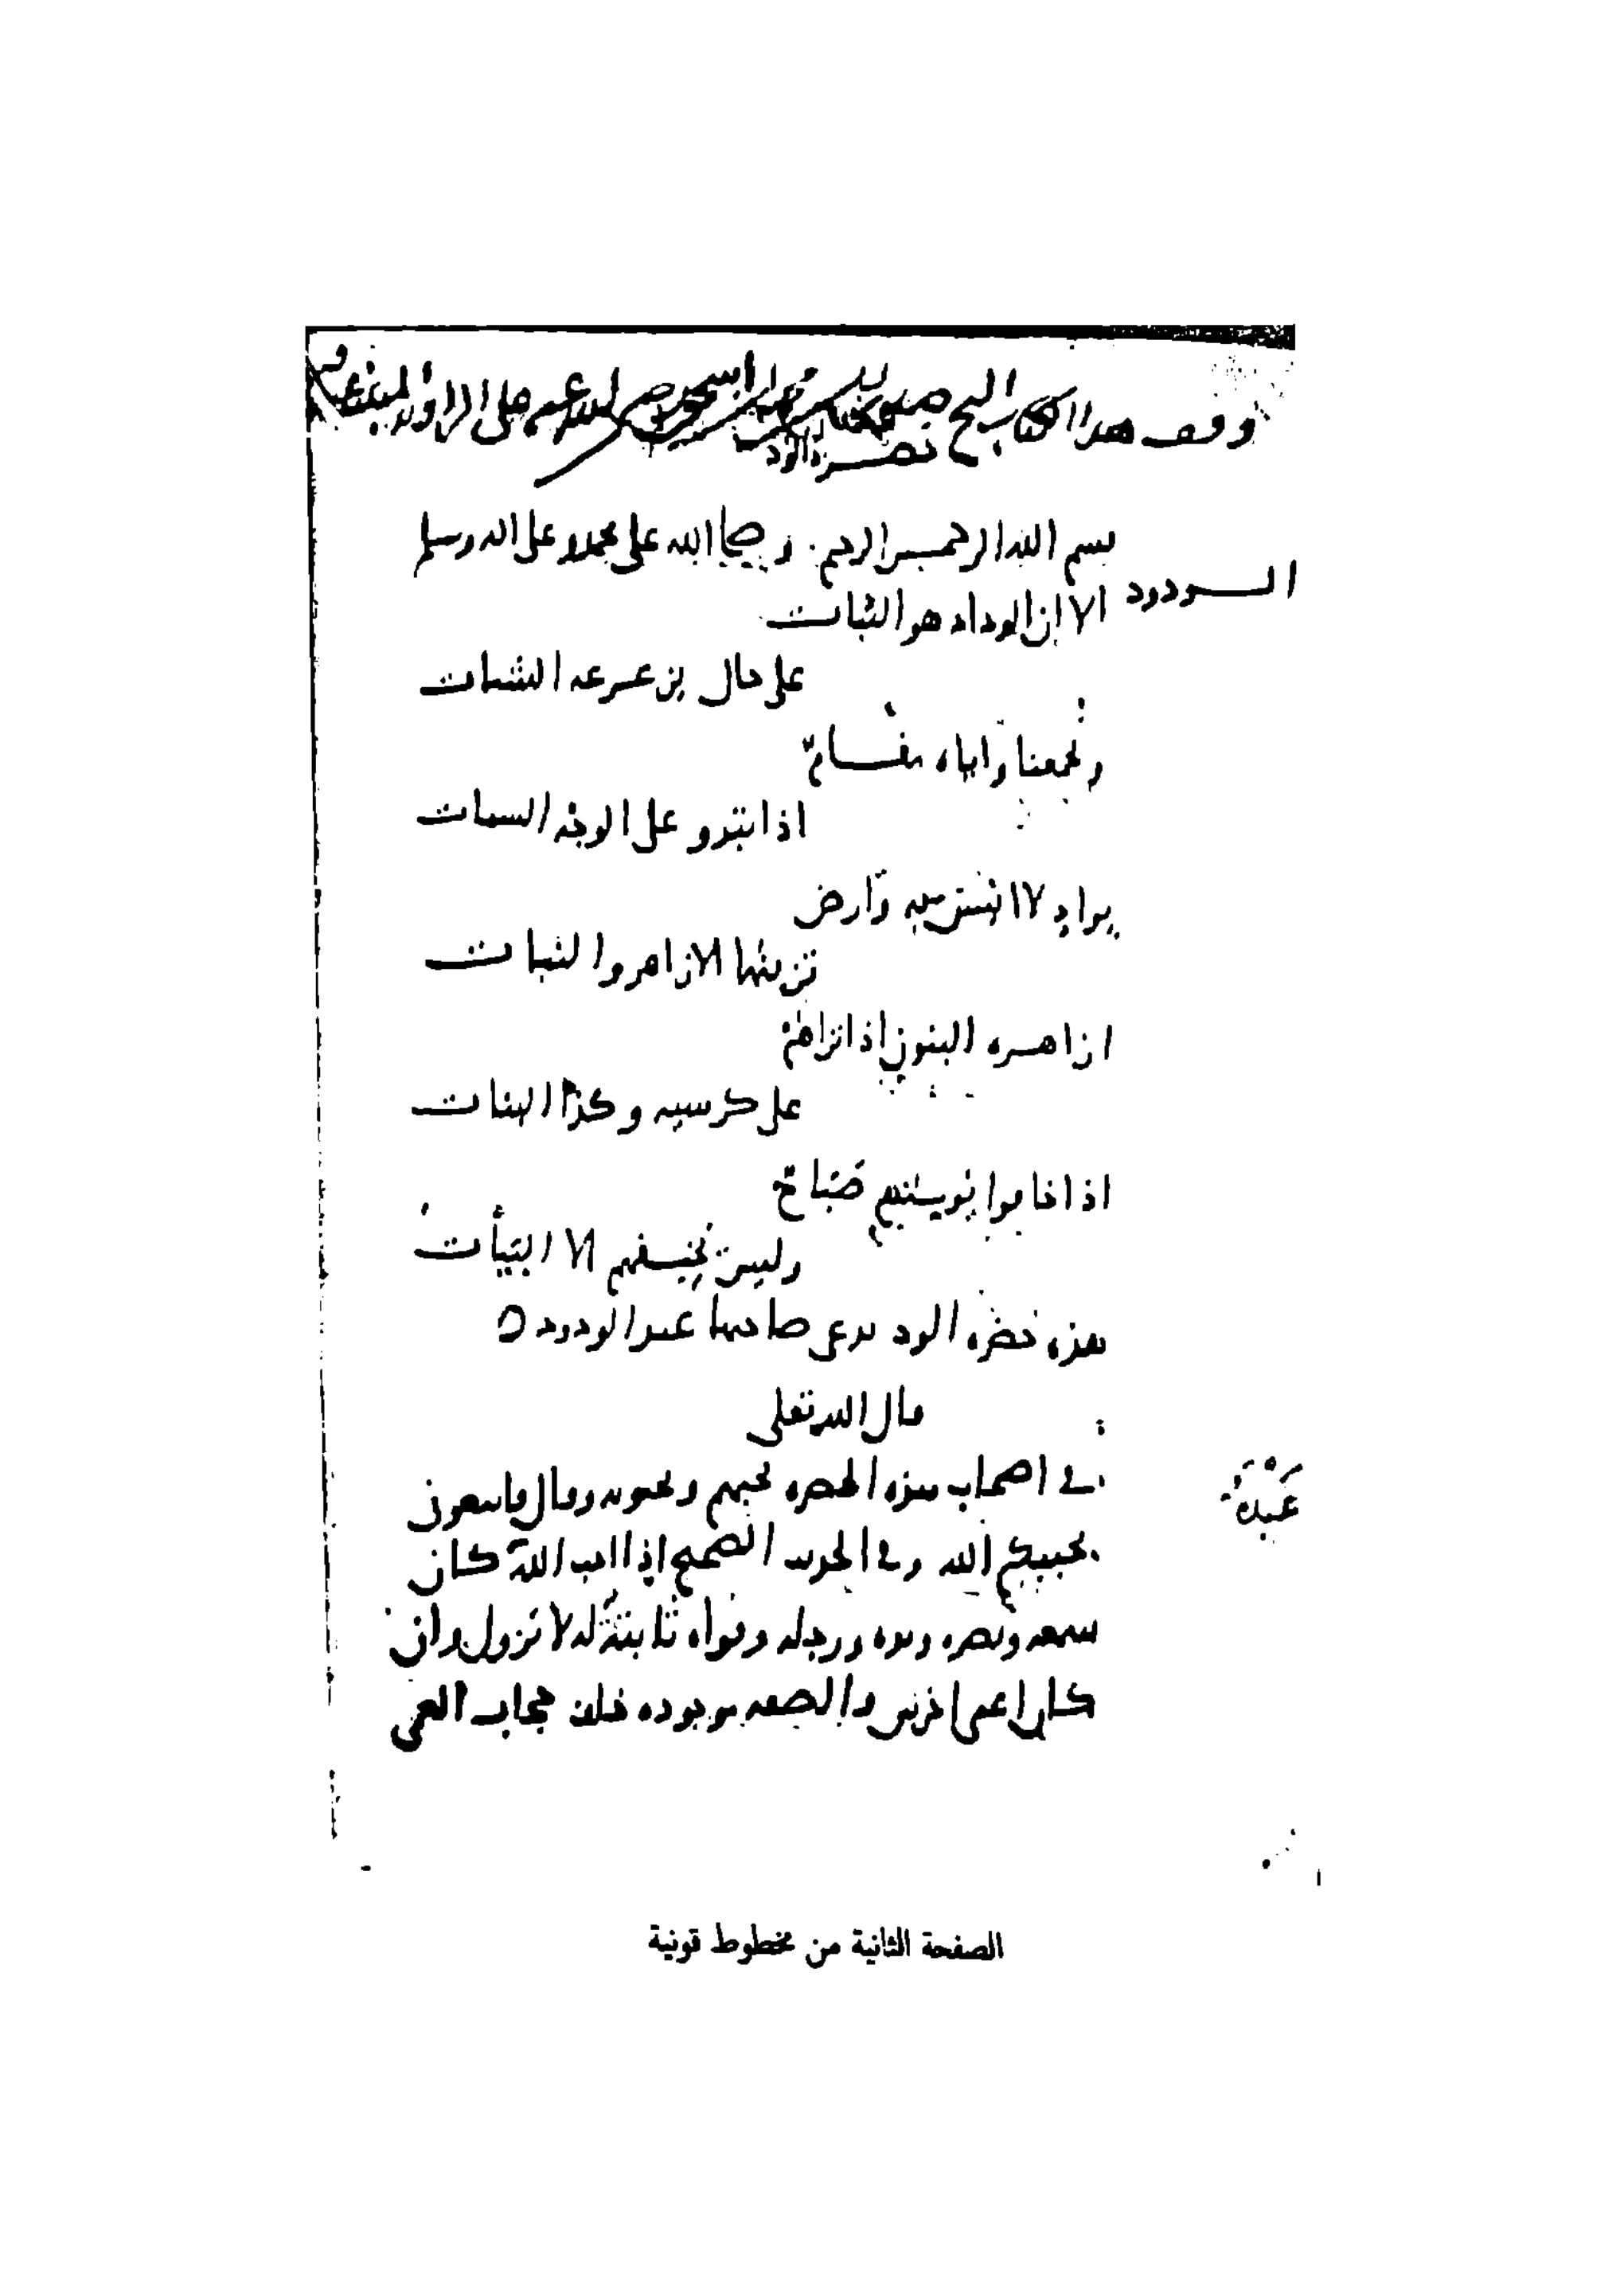 وقف هذا الكتاب الشيخ
حضرة الود
بسم الله الرحمن الرحيم وصلى الله على محمد وعلى اله وسلم
الودود
الا ان الوداد هو الثبات
على حال يزعزعه الشتات
وتجمعنا واياه مقام
اذا تبدو على الوجه السمات
يراه لانس فيه وارض
تزينها الازاهر والنبات
ازاهره البنون اذا تراهم
على كرسيه وكذا البنات
اذا خافوا يؤيسهم صباح
وليس يخيفهم الا البيات
هذه حضره الود يدعى صاحبها عبد الودود ٥
قال الله تعلى
في اصحاب هذه الحضره يحبهم ويحبونه وقال فاتبعوني
يحببكم الله وفي الحديث الصحيح اذا احب الله
عبده
كان
سمعه وبصره ويده ورجله وقواه ثابتة له لا تزول وان
كان اعمى اخرس فالصفه موجوده خلف حجاب العمى
الصفحة الثانية من مخطوط قونية